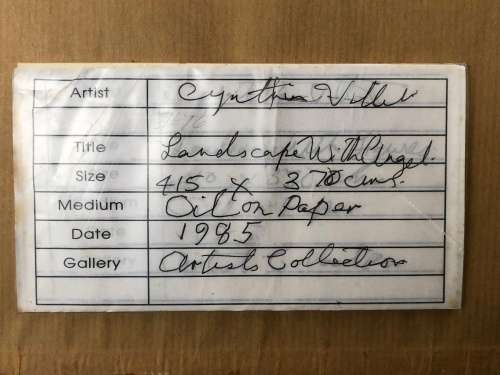 Artist Cynthia Villet
Title Landscape With Angel.
Size 415 x 370 cms.
Medium Oil on Paper
Date 1985
Gallery Artists Collection